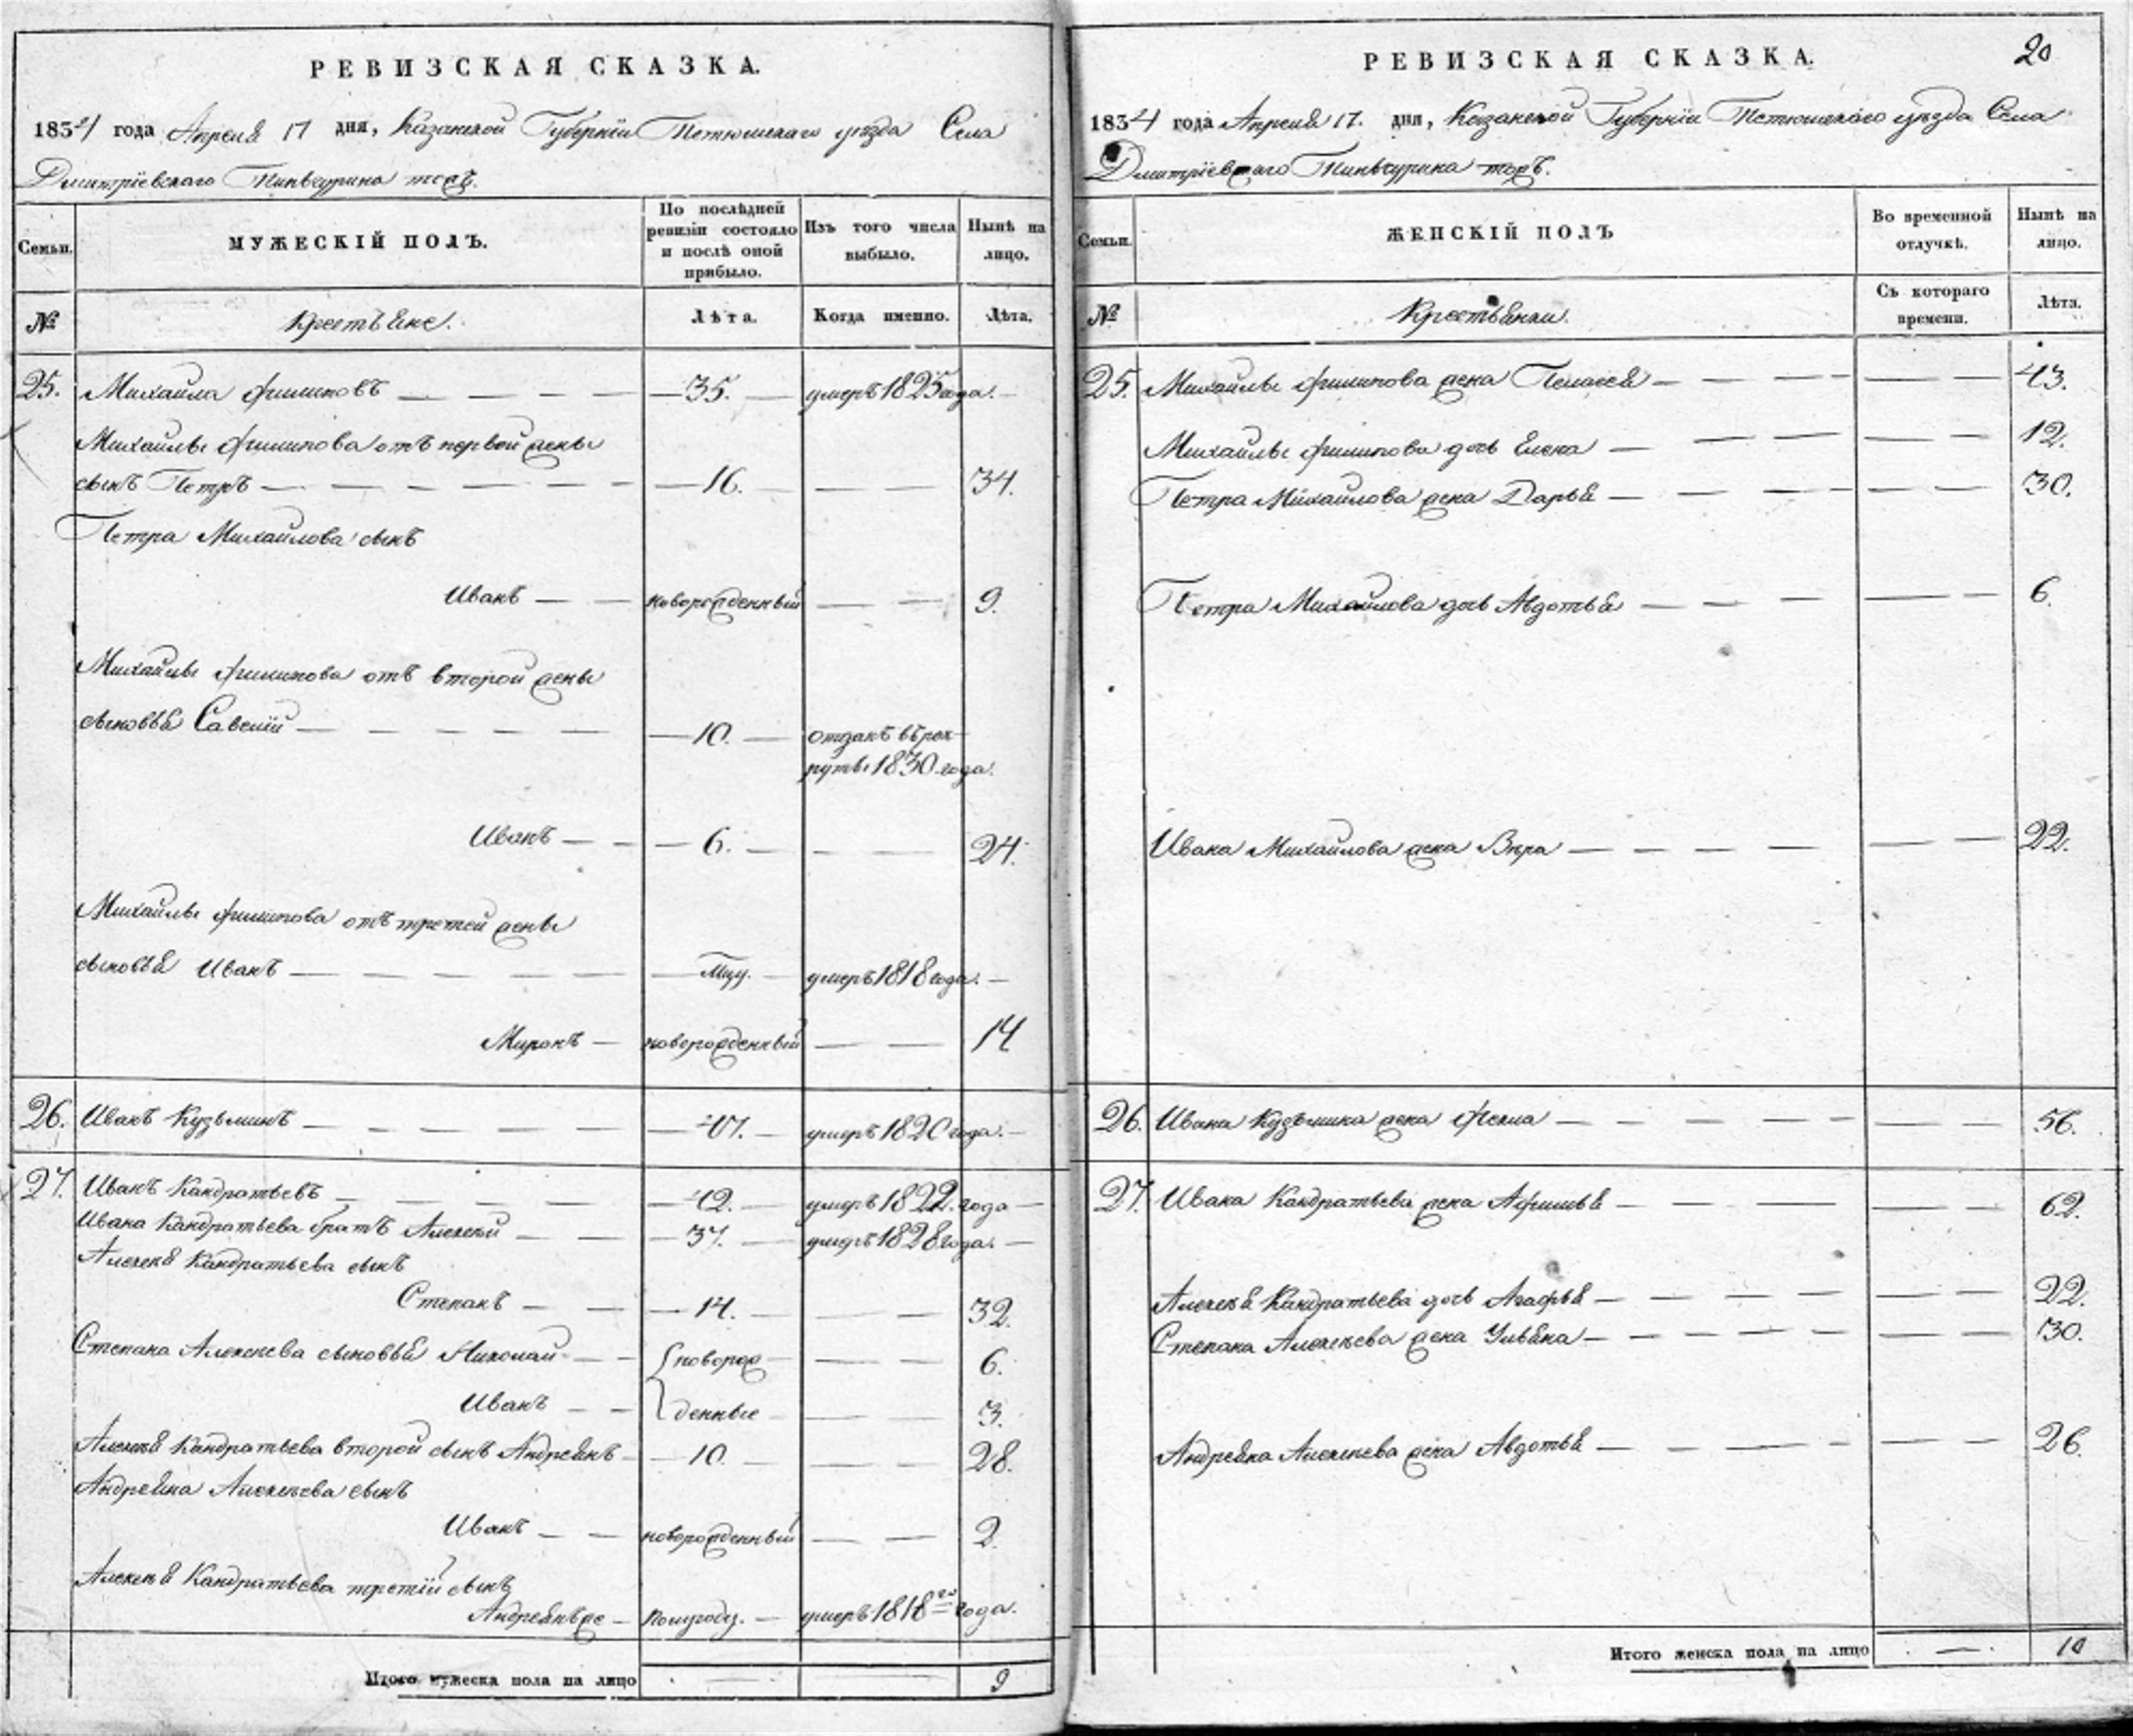 РЕВИЗСКАЯ СКАЗКА.
1834 года Апреля 17 дня, Казанской Губернїи Тетюшскаго уѣзда Села
Дмитрїевскаго Тиньчурина тожъ.
Семьи.
МУЖЕСКІЙ ПОЛЪ.
По послѣдней ревизіи состояло и послѣ оной прибыло.
Изъ того числа выбыло.
Нынѣ на лицо.
№
Крестьяне.
Лѣта.
Когда именно.
Лѣта.
25. Михайла Филиповъ — 35. — умеръ 1825 года. —
Михайлы Филипова отъ первой жены
сынъ Петръ — 16. — 34.
Петра Михайлова сынъ
Иванъ — новорожденный — 9.
Михайлы Филипова отъ второй жены
сыновья Савелїй — 10. — отданъ въ рек-
руты 1830 года.
Иванъ — 6. — 24.
Михайлы Филипова отъ третей жены
сыновья Иванъ — Мцу. — умеръ 1818 года. —
Миронъ — новорожденный — 14
26. Иванъ Кузьминъ — 47. — умеръ 1820 года. —
27. Иванъ Кандратьевъ — 42. — умеръ 1822. года —
Ивана Кандратьева братъ Алексей — 37. — умеръ 1828 года. —
Алексея Кандратьева сынъ
Степанъ — 14. — 32.
Степана Алексеева сыновья Николай — новорож- — 6.
Иванъ — денные — 3.
Алексея Кандратьева второй сынъ Андреянъ — 10. — 28.
Андреяна Алексеева сынъ
Иванъ — новорожденный — 2.
Алексея Кандратьева третїй сынъ
Андреянъ же — полугоду. — умеръ 1818го года.
Итого мужеска пола на лицо — 9
РЕВИЗСКАЯ СКАЗКА.
20
1834 года Апреля 17. дня, Казанской Губернїи Тетюшскаго уѣзда Села
Дмитрїевскаго Тиньчурина тожъ.
Семьи.
ЖЕНСКІЙ ПОЛЪ
Во временной отлучкѣ.
Нынѣ на лицо.
№
Крестьянки.
Съ котораго времени.
Лѣта.
25. Михайлы Филипова жена Пелагея — 43.
Михайлы Филипова дочь Елена — 12.
Петра Михайлова жена Дарья — 30.
Петра Михайлова дочь Авдотья — 6.
Ивана Михайлова жена Вѣра — 22.
26. Ивана Кузьмина жена Фекла — 56.
27. Ивана Кандратьева жена Афимья — 62.
Алексея Кандратьева дочь Агафья — 22.
Степана Алексеева жена Ульяна — 30.
Андреяна Алексеева жена Авдотья — 26.
Итого женска пола на лицо — 10